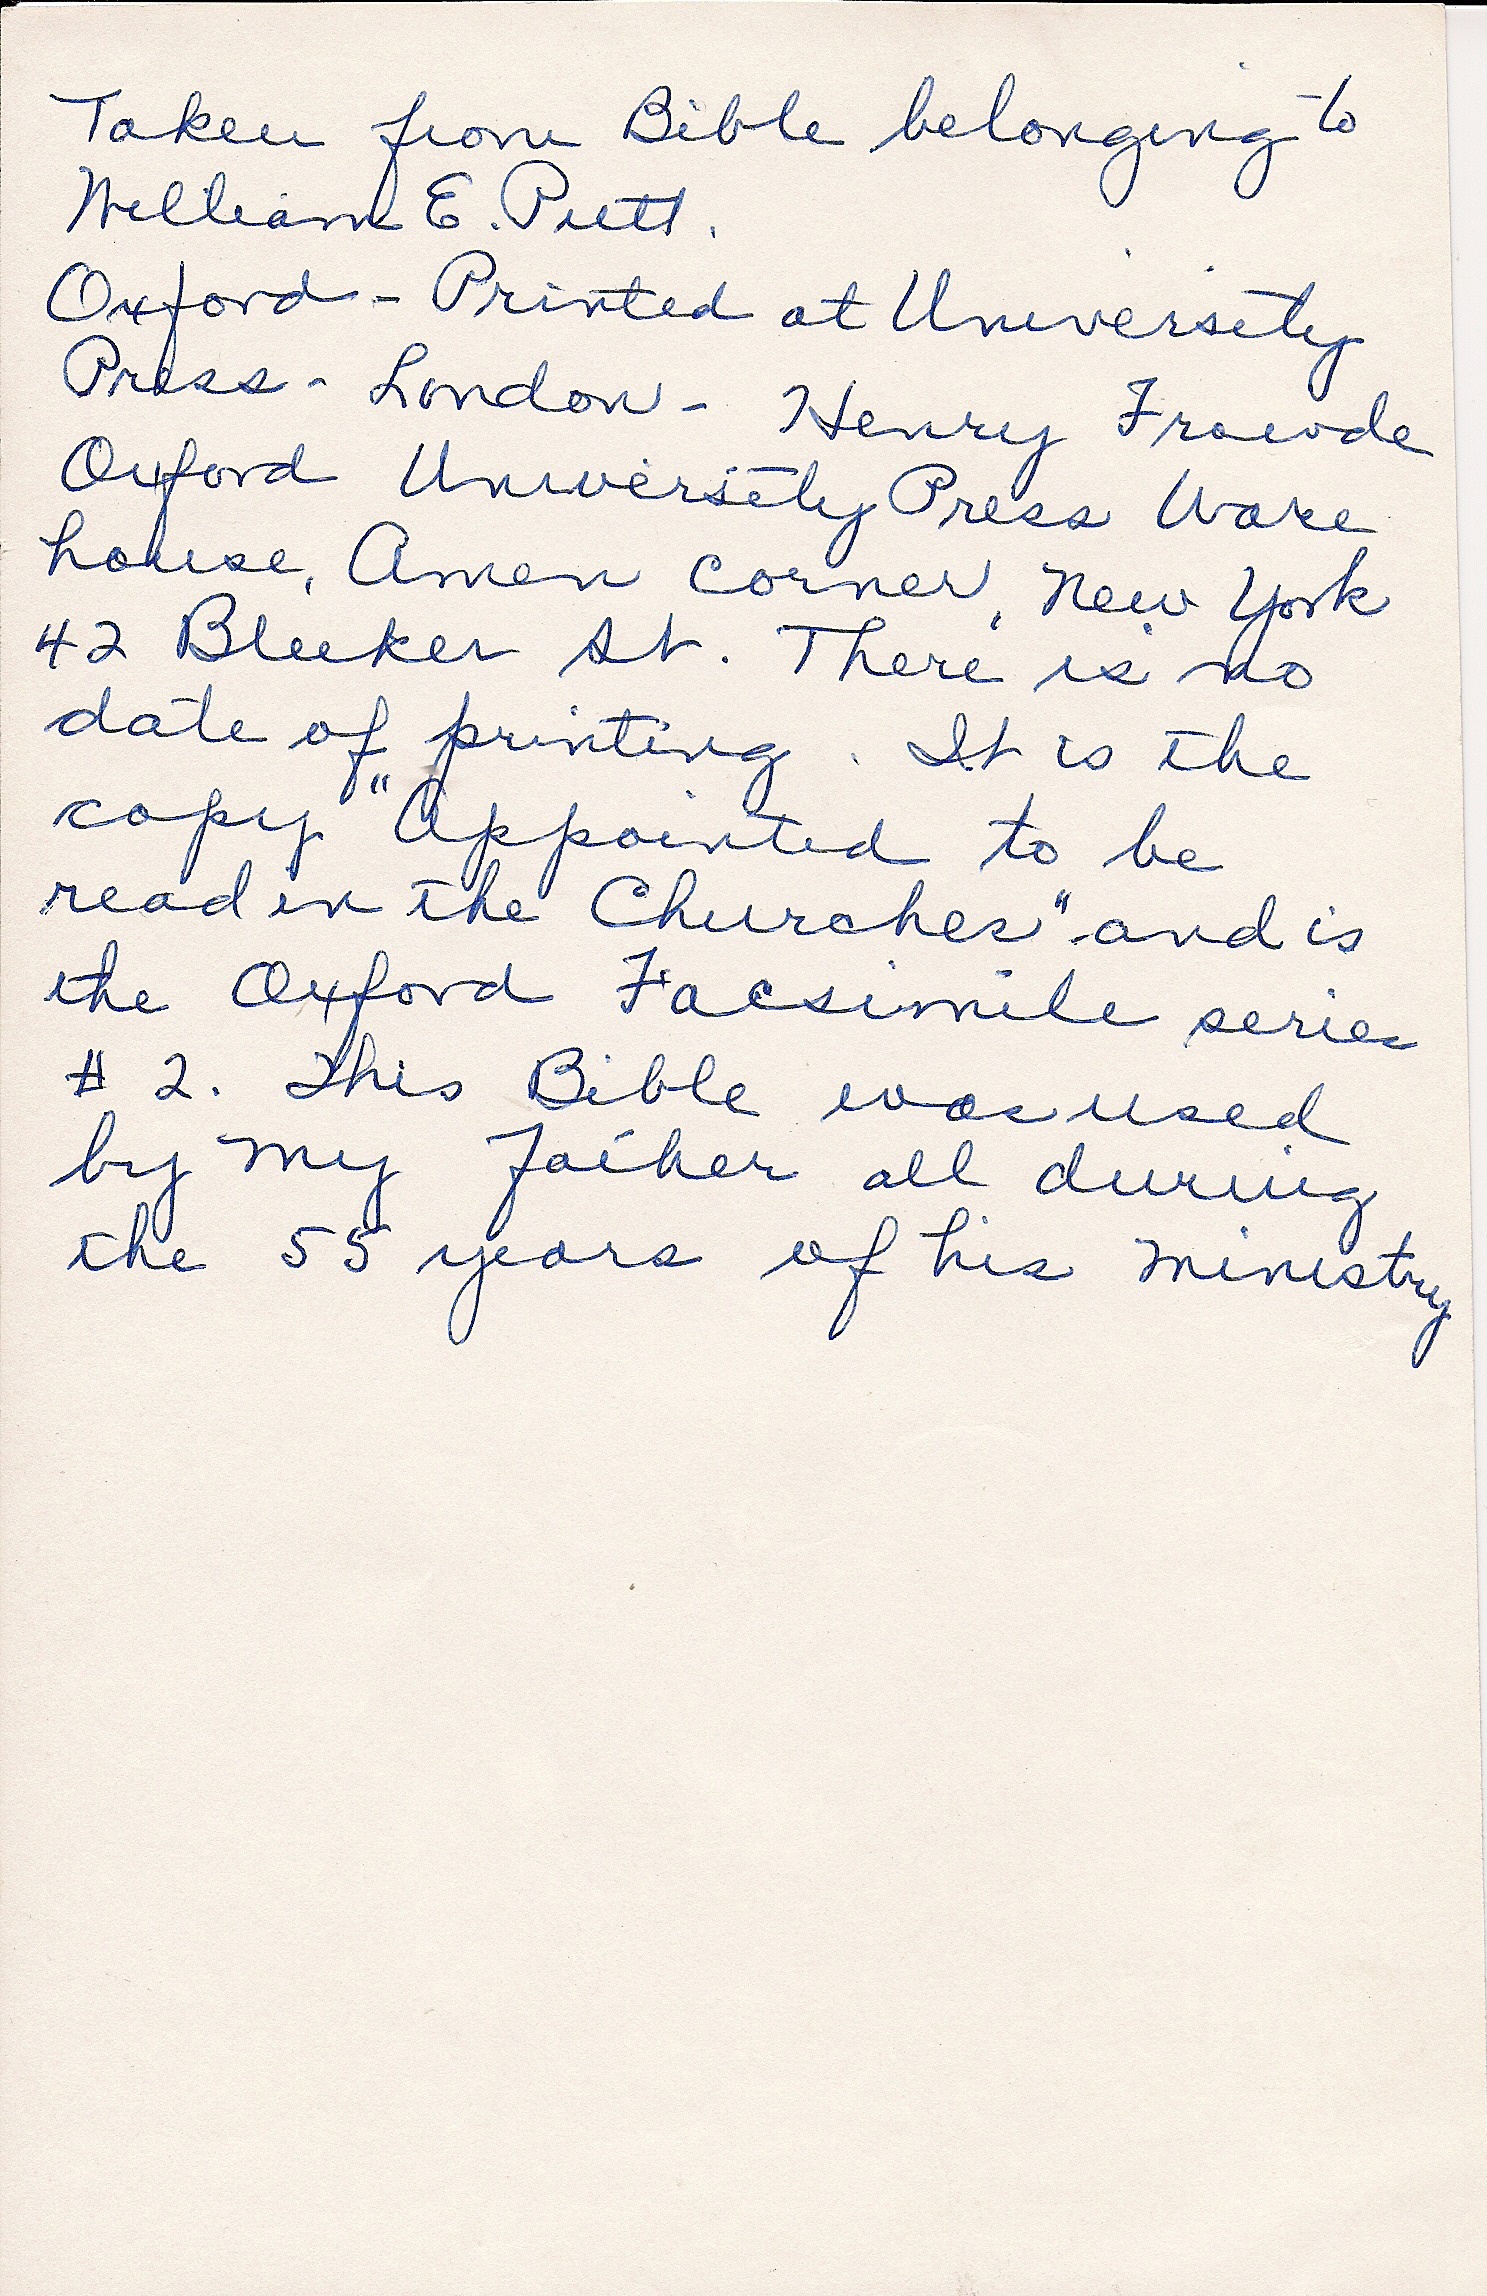 Taken from Bible belonging to
William E. Puett.
Oxford - Printed at University
Press - London - Henry Frowde
Oxford University Press Ware
house, Amen Corner, New York
42 Bleeker St. There is no
date of printing. It is the
copy "Appointed to be
read in the Churches" and is
the Oxford Facsimile series
# 2. This Bible was used
by my Father all during
the 55 years of his ministry